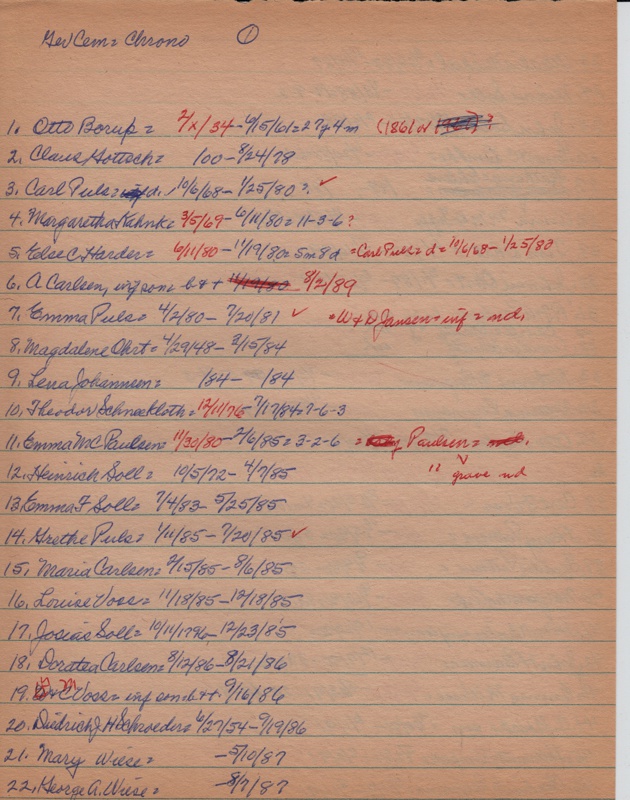 Ger Cem = Chrono 1
1. Otto Borup = 2/x/34 - 6/15/61 = 27y 4m (1861 or ?
2. Claus Gottsch = /00 - 8/24/78
3. Carl Puls = d. 10/6/68 - 1/25/80 ?. ✓
4. Margaretha Kahnk = 3/5/69 - 6/11/80 = 11-3-6 ?
5. Else C. Harder = 6/11/80 - 11/19/80 = 5m 8d = Carl Puls = d = 10/6/68 - 1/25/80
6. A Carlsen, inf son = b & + 11/19/80 8/2/89
7. Emma Puls = 4/2/80 - 7/20/81 ✓ • W & D Jansen = inf = nd.
8. Magdalene Ohrt = 4/29/48 - 2/15/84
9. Lena Johannsen = /84 - /84
10. Theodor Schneekloth = 12/11/76 7/17/84 = 7-6-3
11. Emma M C Paulsen = 11/30/80 - 2/6/85 = 3-2-6 = Paulsen = nd.
" grave nd
12. Heinrich Soll = 10/5/72 - 4/7/85
13. Emma F Soll = 7/4/83 - 5/25/85
14. Grethe Puls = 1/11/85 - 7/20/85 ✓
15. Maria Carlsen = 2/15/85 - 8/6/85
16. Louise Voss = 11/18/85 - 12/18/85
17. Josias Soll = 10/11/1796 - 12/23/85
18. Doratea Carlsen = 8/12/86 - 8/21/86
19. & C Voss = inf son = b & + 9/16/86
20. Diedrich J H Schroeder = 6/27/54 - 9/19/86
21. Mary Wiese = - 5/10/87
22. George A. Wiese = - 8/7/87